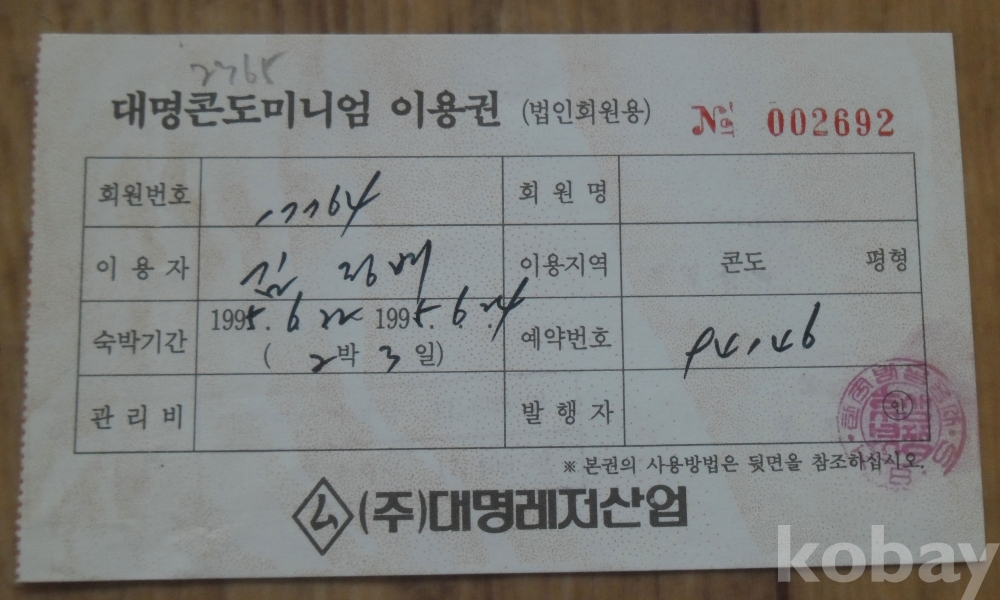 2765
대명콘도미니엄 이용권 (법인회원용) № 002692
회원번호 17764 회원명
이용자 김 정배 이용지역 콘도 평형
숙박기간 1995. 6 22 1995. 6. 24 예약번호 94146
( 2박 3일)
관리비 발행자 인
※ 본권의 사용방법은 뒷면을 참조하십시오.
(주)대명레저산업
kobay